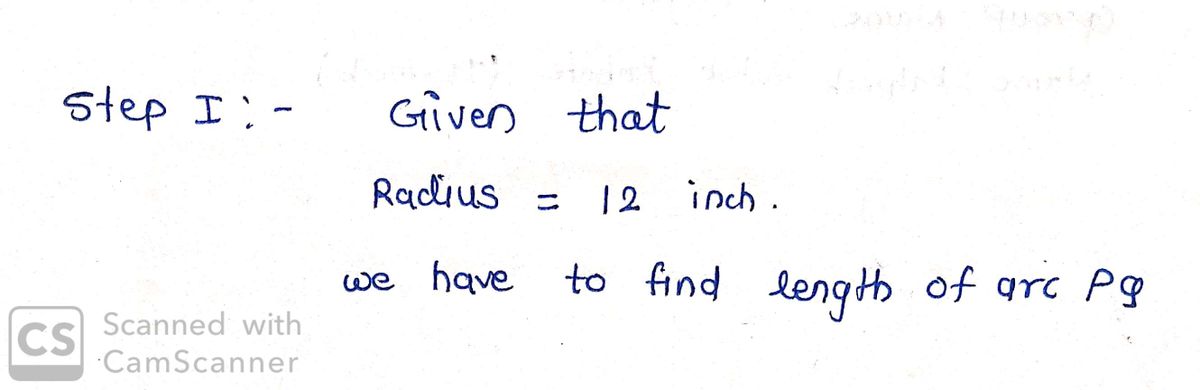 Step I :- Given that
Radius = 12 inch.
we have to find length of arc PQ
CS Scanned with
CamScanner